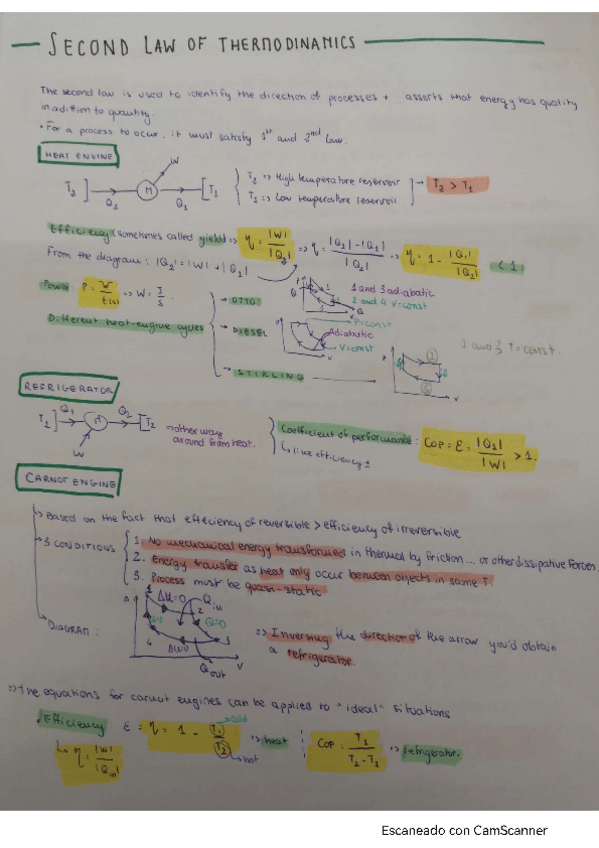 SECOND LAW OF THERMODINAMICS
The second law is used to identify the direction of processes + asserts that energy has quality
in adition to quantity.
• For a process to occur, it must satisfy 1st and 2nd law.
HEAT ENGINE
W
T2 M T1
Q2 Q1
T2 => High temperature reservoir
T1 => Low temperature reservoir
T2 > T1
Efficiency (sometimes called yield) => η = |W| / |Q2| => η = |Q2| - |Q1| / |Q2| => η = 1 - |Q1| / |Q2| < 1.
From the diagram: |Q2| = |W| + |Q1|
Power: P = W / t(s) => W = J / s
Different heat-engine cycles
OTTO
1 and 3 adiabatic
2 and 4 V=const
DIESEL
P=const
Adiabatic
V=const
STIRLING
1 and 3 T=const.
REFRIGERATOR
T1 Q1 M Q2 T2
W
=> other way
around from heat.
Coefficient of performance: COP = ε = |Q1| / |W| > 1.
like efficiency
CARNOT ENGINE
Based on the fact that efficiency of reversible > efficiency of irreversible
3 CONDITIONS
1. No mechanical energy transformed in thermal by friction... or other dissipative forces.
2. Energy transfer as heat only occur between objects in same T.
3. Process must be quasi-static.
DIAGRAM:
ΔU=0 Q in
Q=0
Q out
V
=> Inversing the direction of the arrow you'd obtain
a refrigerator.
=> The equations for carnot engines can be applied to "ideal" situations
Efficiency ε = η = 1 - T1 / T2 => heat
cold
hot
η = |W| / |Q in|
COP = T1 / T2 - T1 => refrigerator.
Escaneado con CamScanner